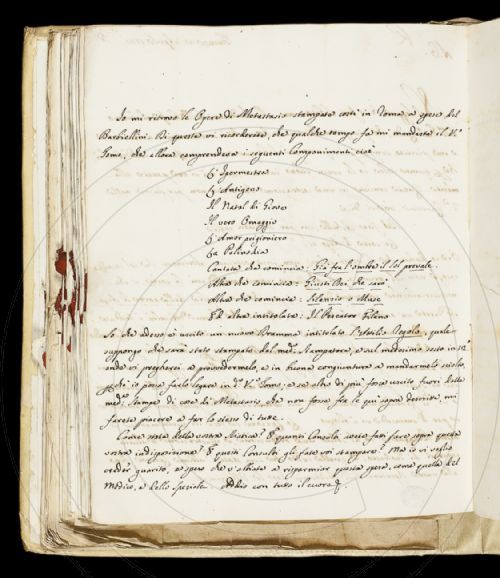 Io mi ritrovo le Opere di Metastasio stampate costì in Roma a spese del
Barbiellini. Di queste vi ricorderete, che qualche tempo fa mi mandaste il V.º
Tomo, che allora comprendeva i seguenti Componimenti cioè
L'Ipermestra
L'Antigono
Il Natal di Giove
Il vero Omaggio
L'Amor prigioniero
La Palinodia
Cantata che comincia: Già fra l'ombre il sol prevale.
Altra che comincia: Giusti Dei che sarà
Altra che comincia: Silenzio o Muse
Ed altra intitolata: Il Pescator Fileno
So che adesso è uscito un nuovo Dramma intitolato l'Attilio Regolo, quale
suppongo che sarà stato stampato dal med.º Stampatore, e sul medesimo sesto in 12
onde vi pregherei a provvedermelo, e in buona congiuntura a mandarmelo sciolto,
ch'io possa farlo legare in d.º V.º Tomo, e se altro di più fosse uscito fuori dalle
med.e Stampe di cose di Metastasio, che non fosse fra le qui sopra descritte, mi
farete piacere a far lo stesso di tutte.
Come state della vostra sciatica? E quanti Consulti avete fatti fare sopra questa
vostra indisposizione? E questi Consulti gli fate voi stampare? Ma io vi voglio
creder guarito, e spero che v'abbiate a risparmiar questa spesa, come quella del
Medico, e dello Speziale. Addio con tutto il cuore